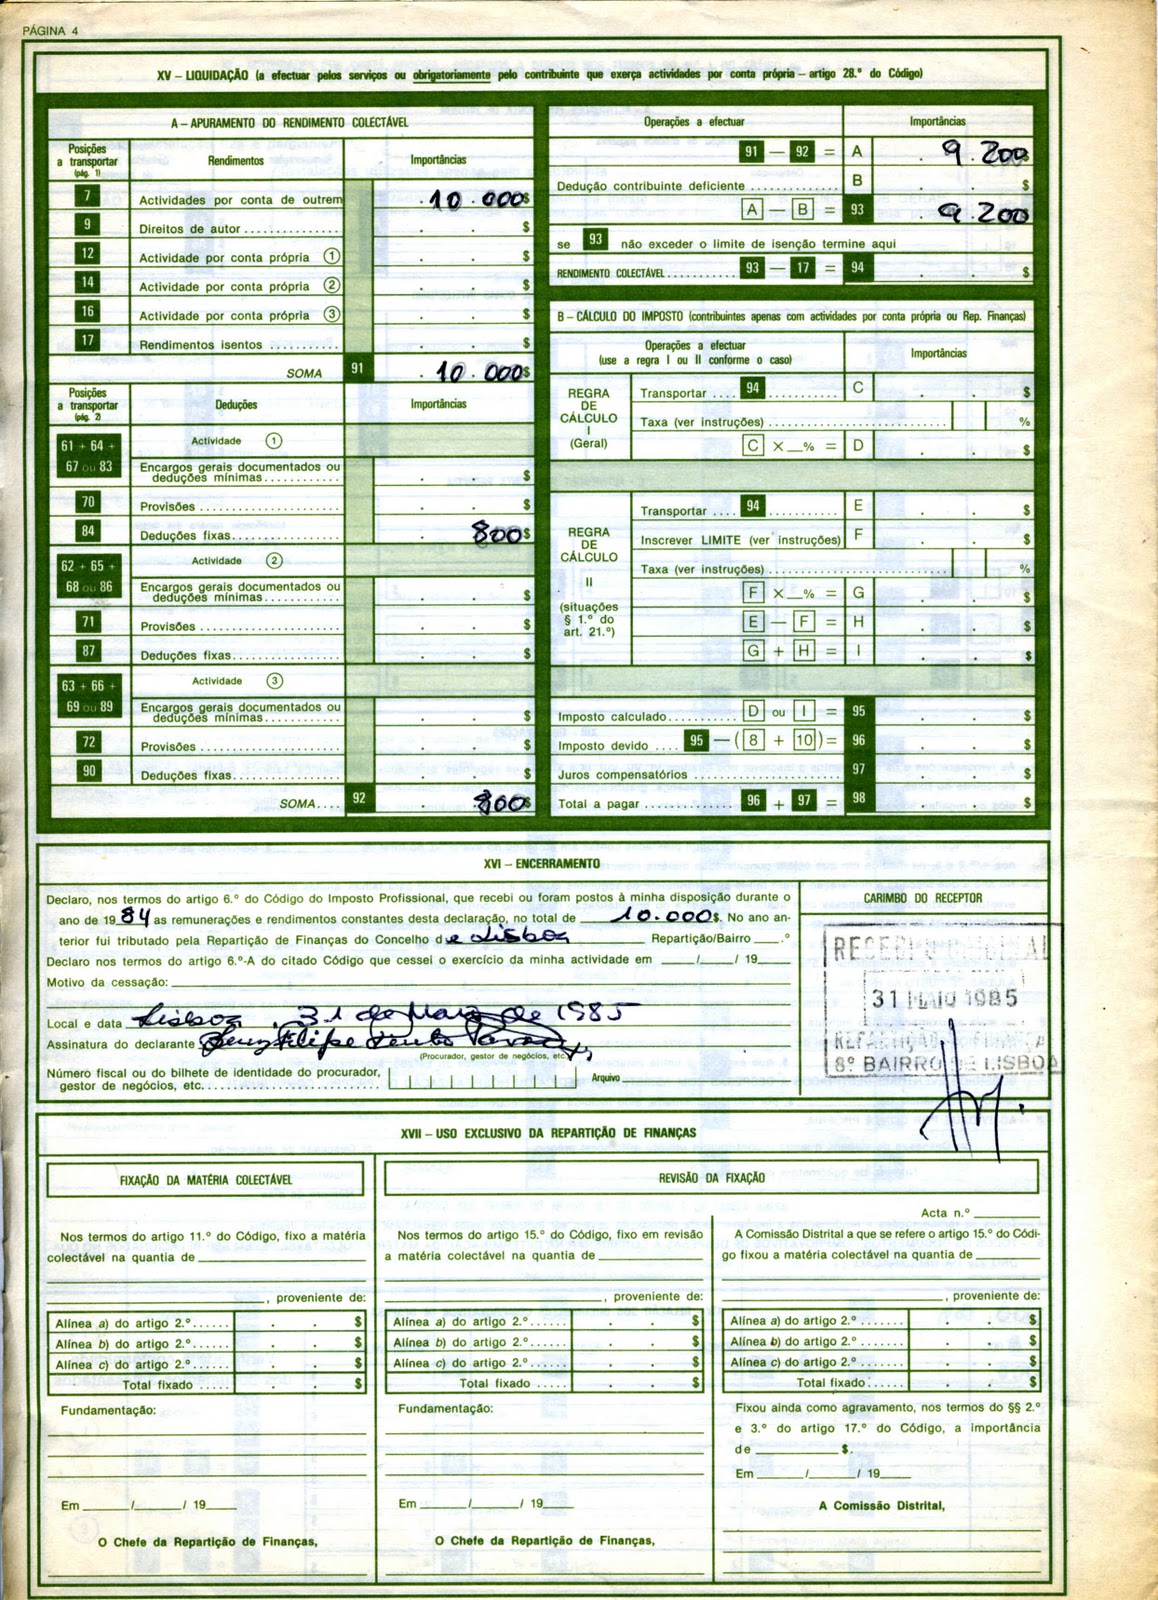 PÁGINA 4
XV – LIQUIDAÇÃO (a efectuar pelos serviços ou obrigatoriamente pelo contribuinte que exerça actividades por conta própria – artigo 28.º do Código)
A – APURAMENTO DO RENDIMENTO COLECTÁVEL
Posições a transportar (pág. 1) Rendimentos Importâncias
7 Actividades por conta de outrem 10.000$
9 Direitos de autor .............. . . $
12 Actividade por conta própria 1 . . $
14 Actividade por conta própria 2 . . $
16 Actividade por conta própria 3 . . $
17 Rendimentos isentos ........... . . $
SOMA 91 . 10.000$
Posições a transportar (pág. 2) Deduções Importâncias
61 + 64 + 67 ou 83 Actividade 1
Encargos gerais documentados ou deduções mínimas ............ . . $
70 Provisões ....................... . . $
84 Deduções fixas.................. 800$
62 + 65 + 68 ou 86 Actividade 2
Encargos gerais documentados ou deduções mínimas ............ . . $
71 Provisões ....................... . . $
87 Deduções fixas.................. . . $
63 + 66 + 69 ou 89 Actividade 3
Encargos gerais documentados ou deduções mínimas ............ . . $
72 Provisões ....................... . . $
90 Deduções fixas.................. . . $
SOMA.... 92 . 800$
Operações a efectuar Importâncias
91 — 92 = A . 9.200$
Dedução contribuinte deficiente .............. B . . $
A — B = 93 . 9.200
se 93 não exceder o limite de isenção termine aqui
RENDIMENTO COLECTÁVEL........... 93 — 17 = 94 . . $
B – CÁLCULO DO IMPOSTO (contribuintes apenas com actividades por conta própria ou Rep. Finanças)
Operações a efectuar (use a regra I ou II conforme o caso) Importâncias
REGRA DE CÁLCULO I (Geral)
Transportar .... 94 ........... C . . $
Taxa (ver instruções) ........................ %
C × __% = D . . $
REGRA DE CÁLCULO II (situações § 1.º do art. 21.º)
Transportar .... 94 ........... E . . $
Inscrever LIMITE (ver instruções) F . . $
Taxa (ver instruções) ........................ %
F × __% = G . . $
E — F = H . . $
G + H = I . . $
Imposto calculado........... D ou I = 95 . . $
Imposto devido .... 95 — (8 + 10) = 96 . . $
Juros compensatórios ........................ 97 . . $
Total a pagar ............... 96 + 97 = 98 . . $
XVI – ENCERRAMENTO
Declaro, nos termos do artigo 6.º do Código do Imposto Profissional, que recebi ou foram postos à minha disposição durante o
ano de 19 84 as remunerações e rendimentos constantes desta declaração, no total de 10.000$. No ano an-
terior fui tributado pela Repartição de Finanças do Concelho de Lisboa Repartição/Bairro ____.º
Declaro nos termos do artigo 6.º-A do citado Código que cessei o exercício da minha actividade em ____/____/ 19____
Motivo da cessação:
Local e data Lisboa, 31 de Maio de 1985
Assinatura do declarante Filipe
(Procurador, gestor de negócios, etc.)
Número fiscal ou do bilhete de identidade do procurador,
gestor de negócios, etc............................. Arquivo
CARIMBO DO RECEPTOR
31 MAIO 1985
REPARTIÇÃO DE FINANÇAS
8º BAIRRO DE LISBOA
XVII – USO EXCLUSIVO DA REPARTIÇÃO DE FINANÇAS
FIXAÇÃO DA MATÉRIA COLECTÁVEL
Nos termos do artigo 11.º do Código, fixo a matéria
colectável na quantia de
, proveniente de:
Alínea a) do artigo 2.º...... . . $
Alínea b) do artigo 2.º...... . . $
Alínea c) do artigo 2.º...... . . $
Total fixado ..... . . $
Fundamentação:
Em ____/____/ 19____
O Chefe da Repartição de Finanças,
REVISÃO DA FIXAÇÃO
Nos termos do artigo 15.º do Código, fixo em revisão
a matéria colectável na quantia de
, proveniente de:
Alínea a) do artigo 2.º...... . . $
Alínea b) do artigo 2.º...... . . $
Alínea c) do artigo 2.º...... . . $
Total fixado ..... . . $
Fundamentação:
Em ____/____/ 19____
O Chefe da Repartição de Finanças,
Acta n.º
A Comissão Distrital a que se refere o artigo 15.º do Códi-
go fixou a matéria colectável na quantia de
, proveniente de:
Alínea a) do artigo 2.º....... . . $
Alínea b) do artigo 2.º....... . . $
Alínea c) do artigo 2.º....... . . $
Total fixado ...... . . $
Fixou ainda como agravamento, nos termos do §§ 2.º
e 3.º do artigo 17.º do Código, a importância
de ________ $.
Em ____/____/ 19____
A Comissão Distrital,